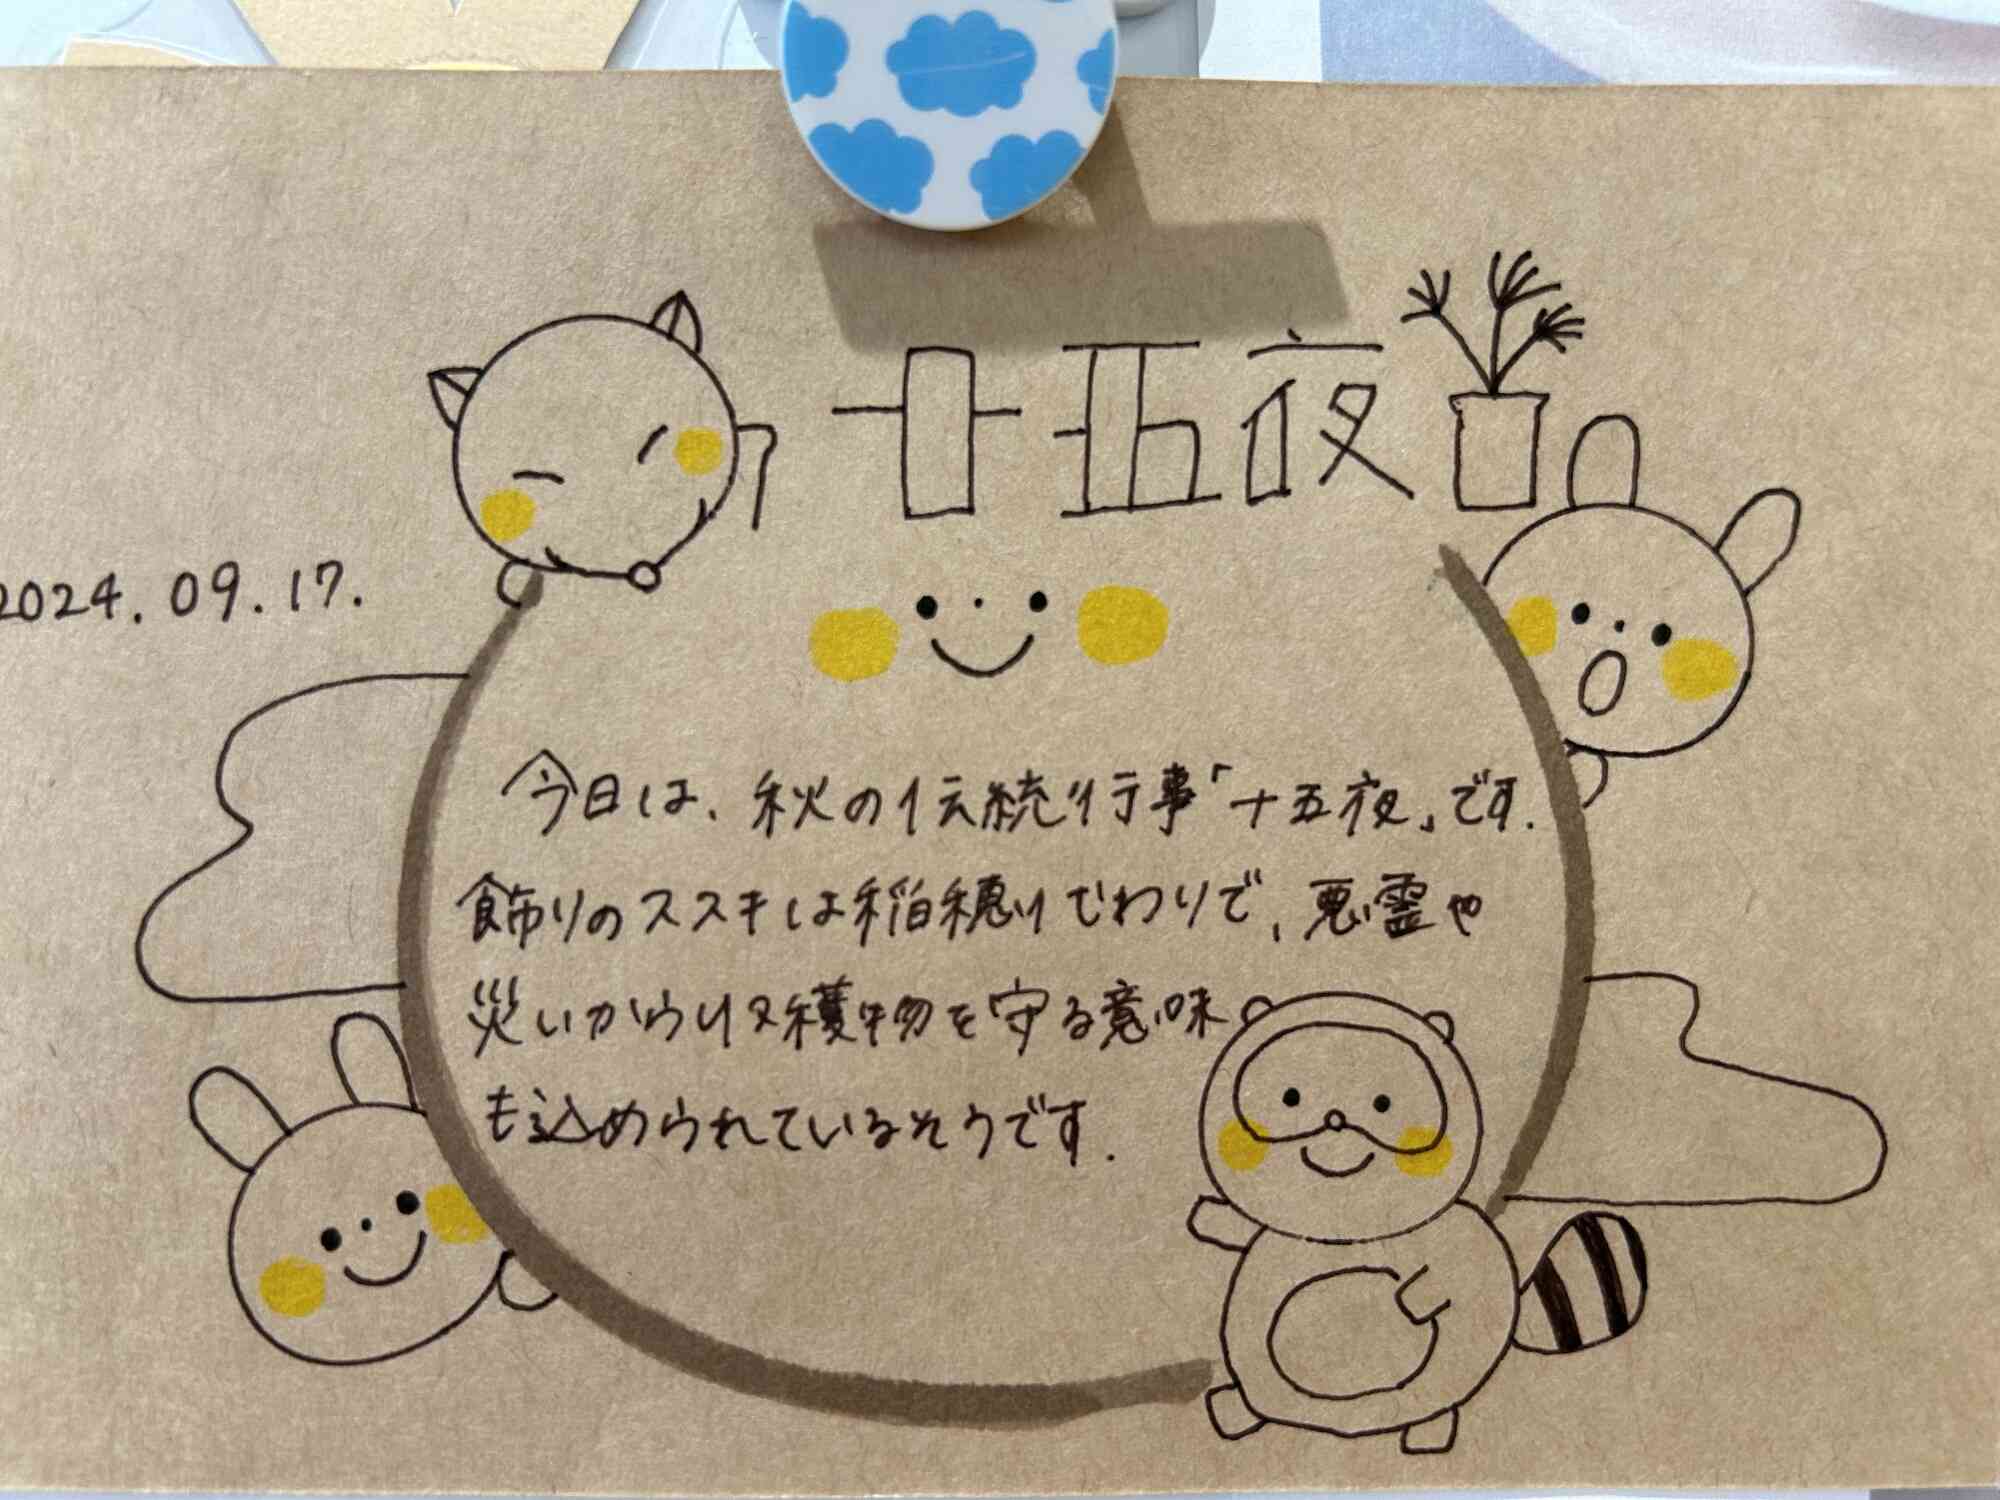 十五夜
2024.09.17.
今日は、秋の伝統行事「十五夜」です.
飾りのススキは稲穂がわりで、悪霊や
災いから収穫物を守る意味
も込められているそうです.